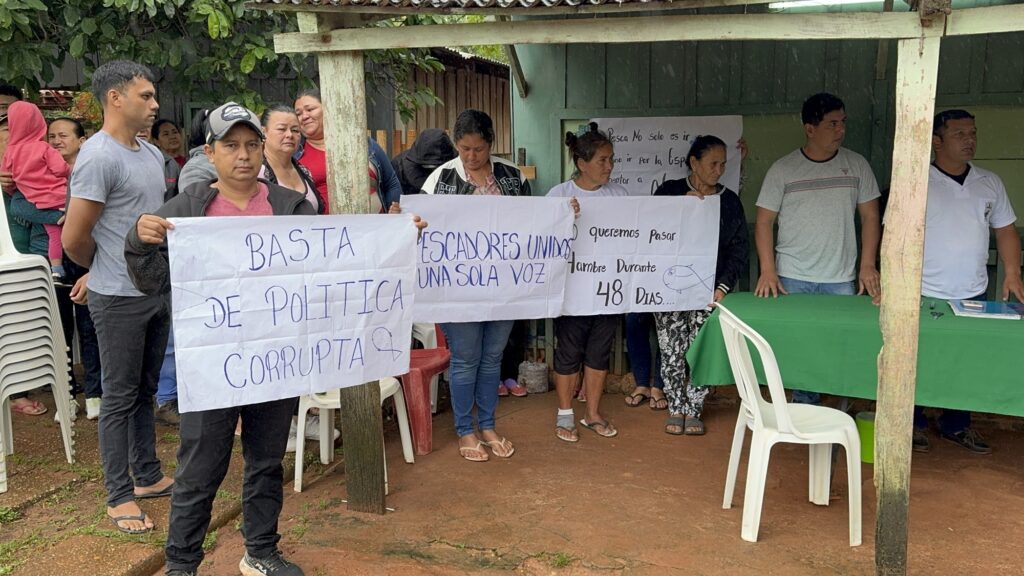 BASTA
DE POLITICA
CORRUPTA
PESCADORES UNIDOS
UNA SOLA VOZ
queremos Pasar
Hambre Durante
48 DÍAS...
Pesca No solo es ir
ir por la
FILA